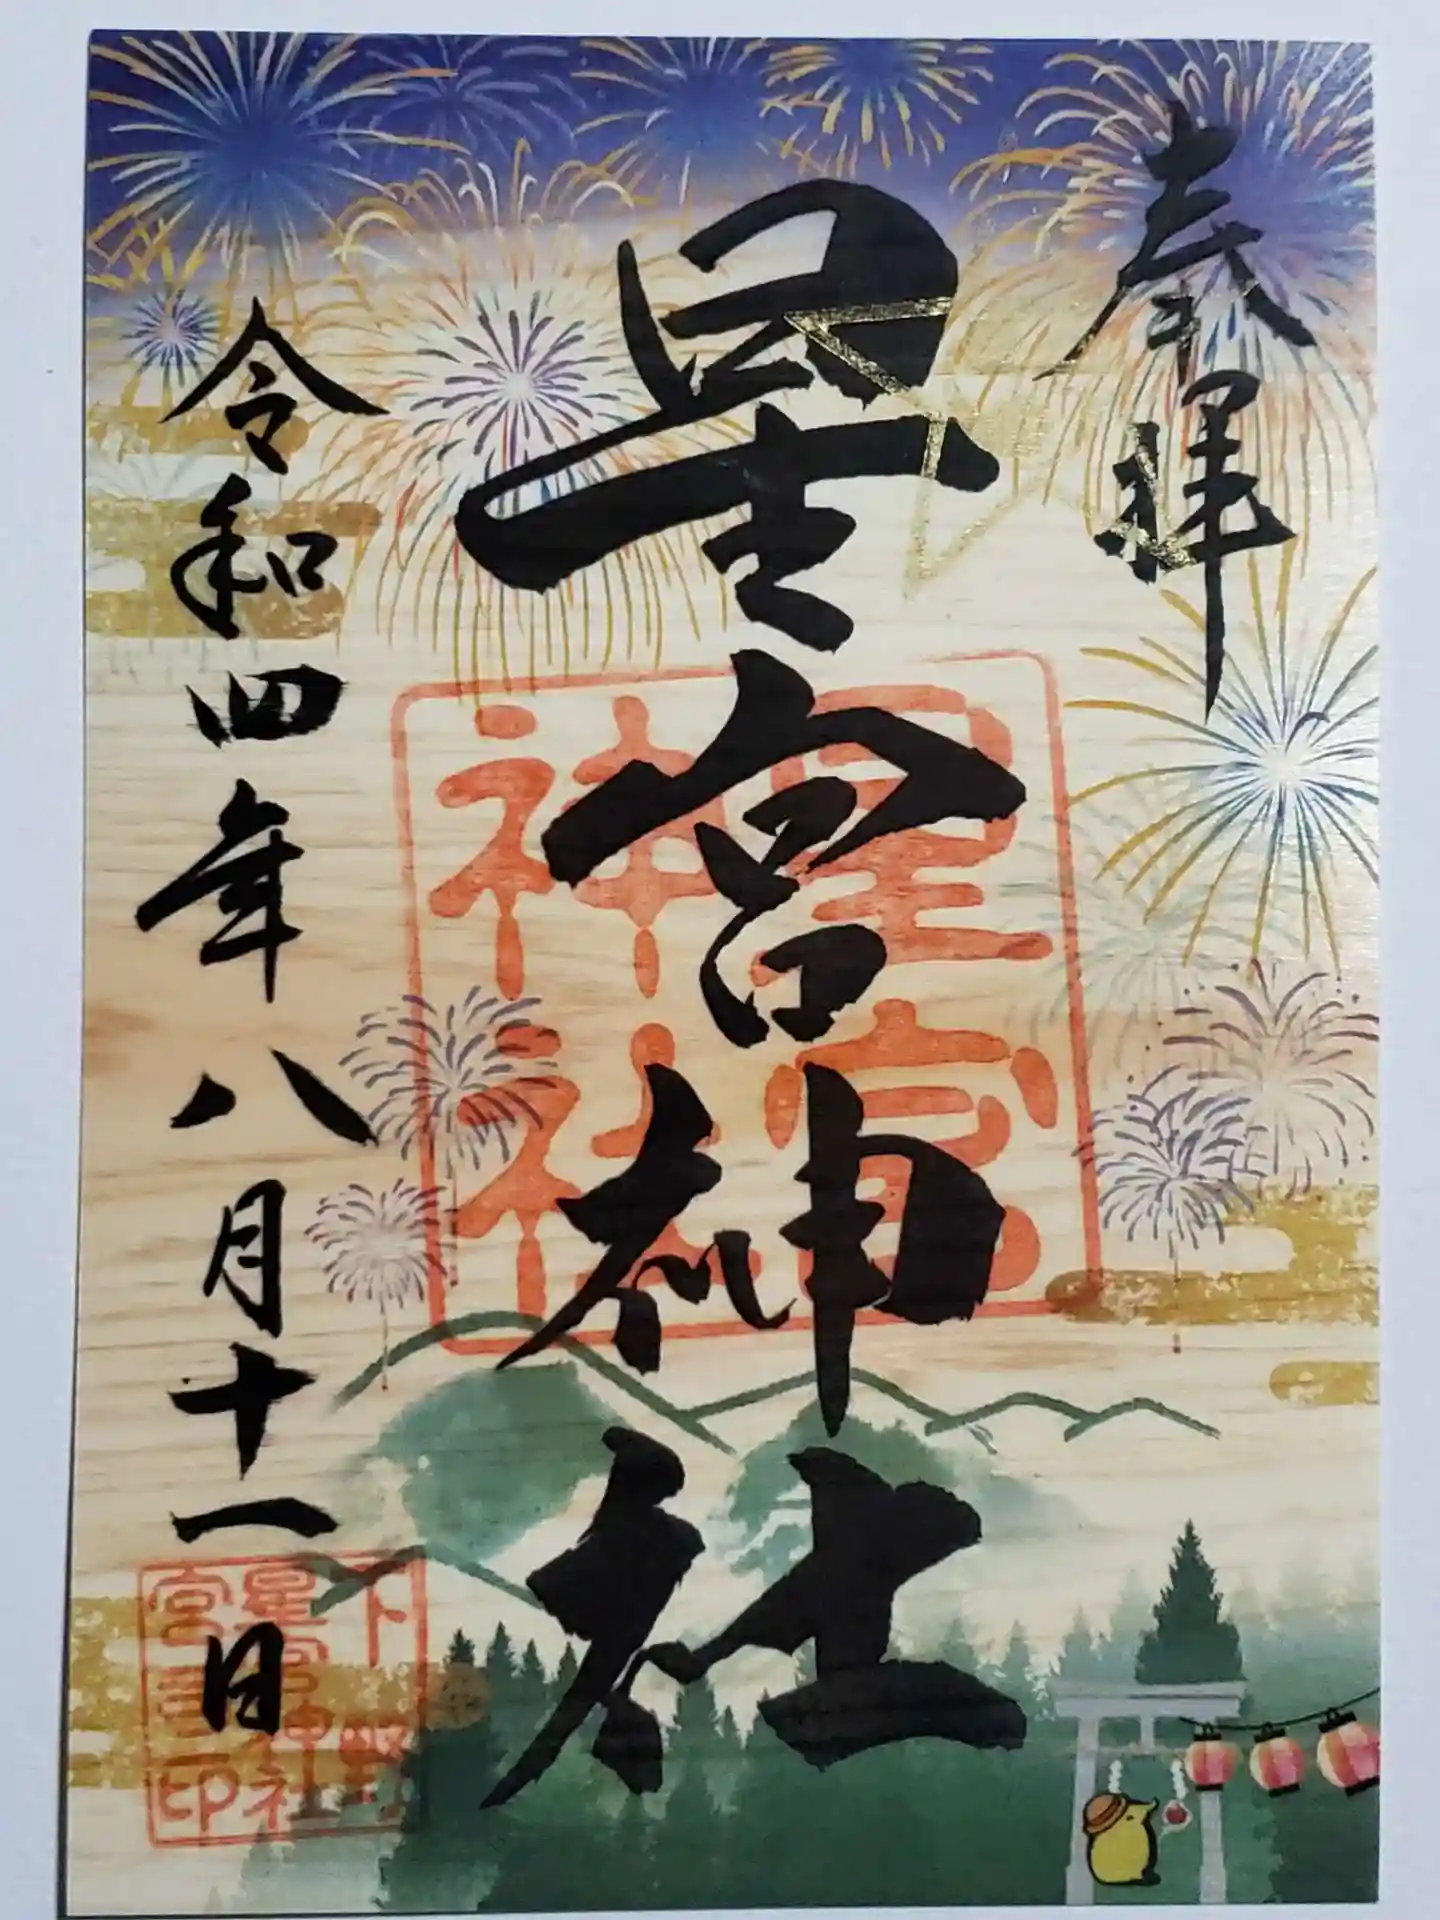 奉拝
星宮神社
令和四年八月十一日
星宮
神社
下野
星宮神社
宮司印